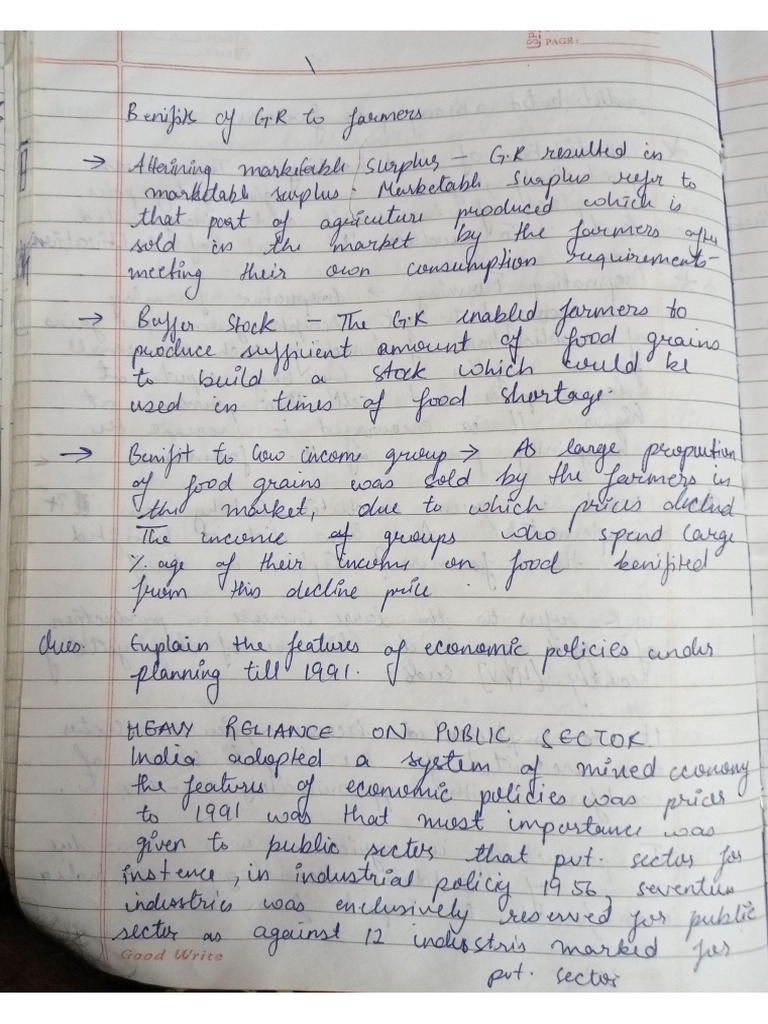 PAGE:
Benifits of G.R to farmers
→ Attaining marketable surplus – G.R resulted in
marketable surplus. Marketable surplus refr to
that part of agricuture produced which is
sold in the market by the farmers after
meeting their own consumption requirements
→ Buffer Stock – The G.R enabled farmers to
produce sufficient amount of food grains
to build a stock which could be
used in times of food shortage.
→ Benifit to low income group → As large proportion
of food grains was sold by the farmers in
the market, due to which prices declined
The income of groups who spend large
% age of their income on food benifited
from this decline price.
Ques. Explain the features of economic policies under
planning till 1991.
HEAVY RELIANCE ON PUBLIC SECTOR
India adopted a system of mixed economy
the features of economic policies was prior
to 1991 was that most importance was
given to public sector that pvt. sector for
instence, in industrial policy 1956, seventeen
industries was exclusively reserved for public
sector as against 12 industris marked for
pvt. sector
Good Write